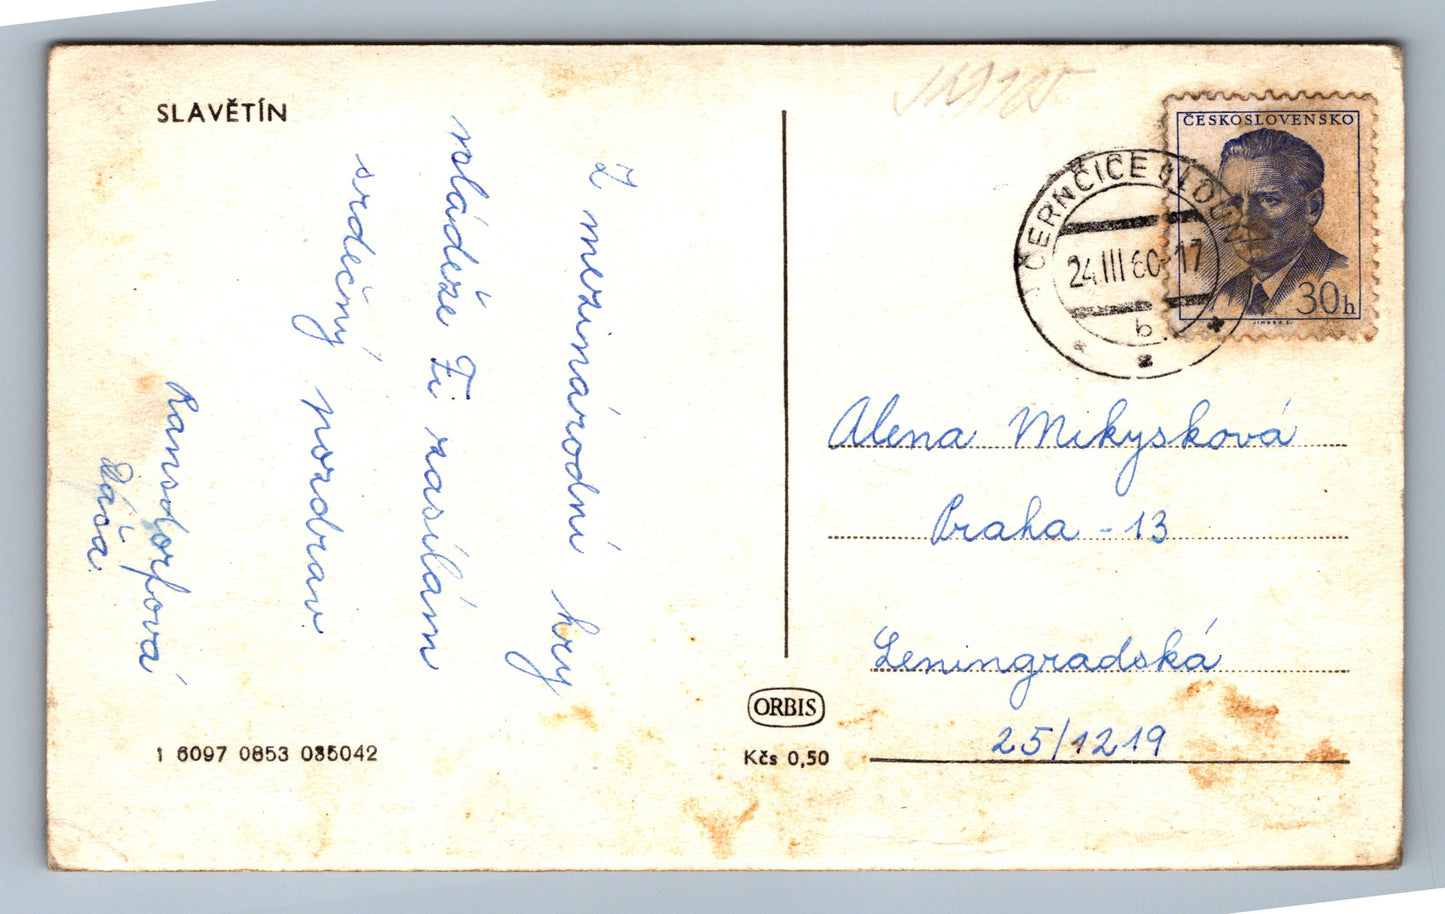 SLAVĚTÍN
Z mezinárodní hry
mládeže Ti zasílám
srdečný pozdrav
Ransdorfová
Dáša.
1 6097 0853 035042
ORBIS
Kčs 0,50
ČESKOSLOVENSKO
30h
ČERNČICE LOUN
24.III 60-17
b
Alena Mikysková
Praha - 13
Leningradská
25/1219